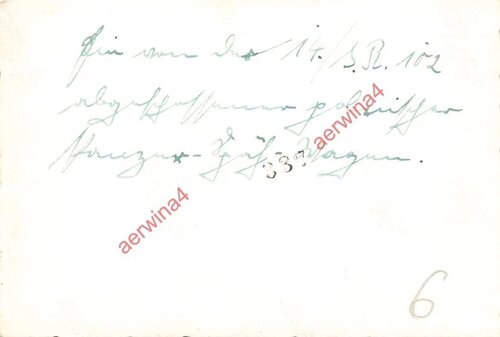 Ein von der 14./I.R. 102
abgeschossener polnischer
Panzer-Späh-Wagen.
337
aerwina4
aerwina4
6